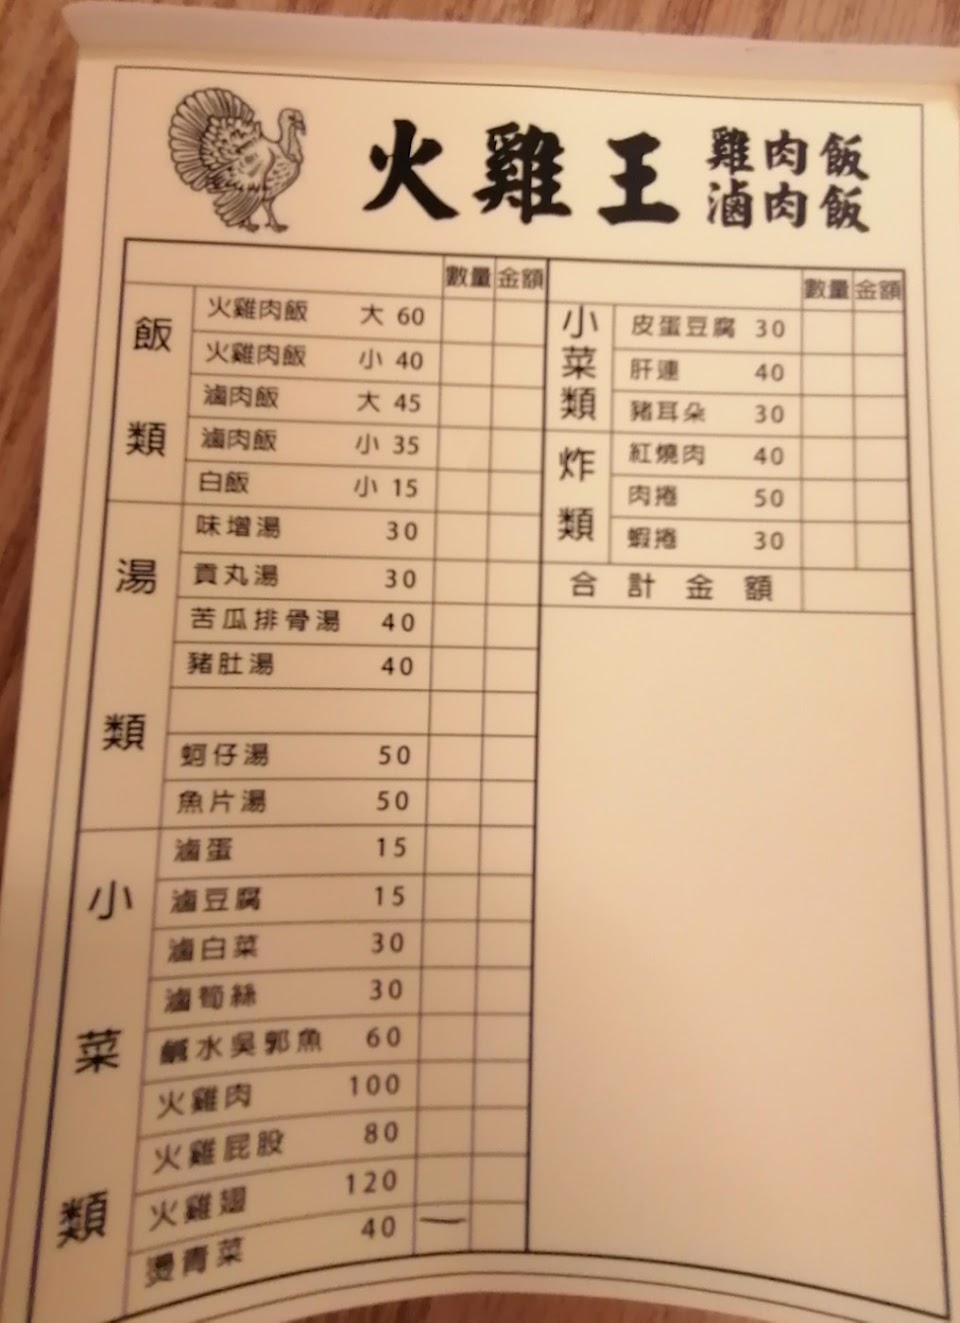 火雞王 雞肉飯
滷肉飯
數量 金額
飯類
火雞肉飯 大 60
火雞肉飯 小 40
滷肉飯 大 45
滷肉飯 小 35
白飯 小 15
湯類
味增湯 30
貢丸湯 30
苦瓜排骨湯 40
豬肚湯 40
蚵仔湯 50
魚片湯 50
小菜類
滷蛋 15
滷豆腐 15
滷白菜 30
滷筍絲 30
鹹水吳郭魚 60
火雞肉 100
火雞屁股 80
火雞翅 120
燙青菜 40 一
數量 金額
小菜類
皮蛋豆腐 30
肝連 40
豬耳朵 30
炸類
紅燒肉 40
肉捲 50
蝦捲 30
合計金額